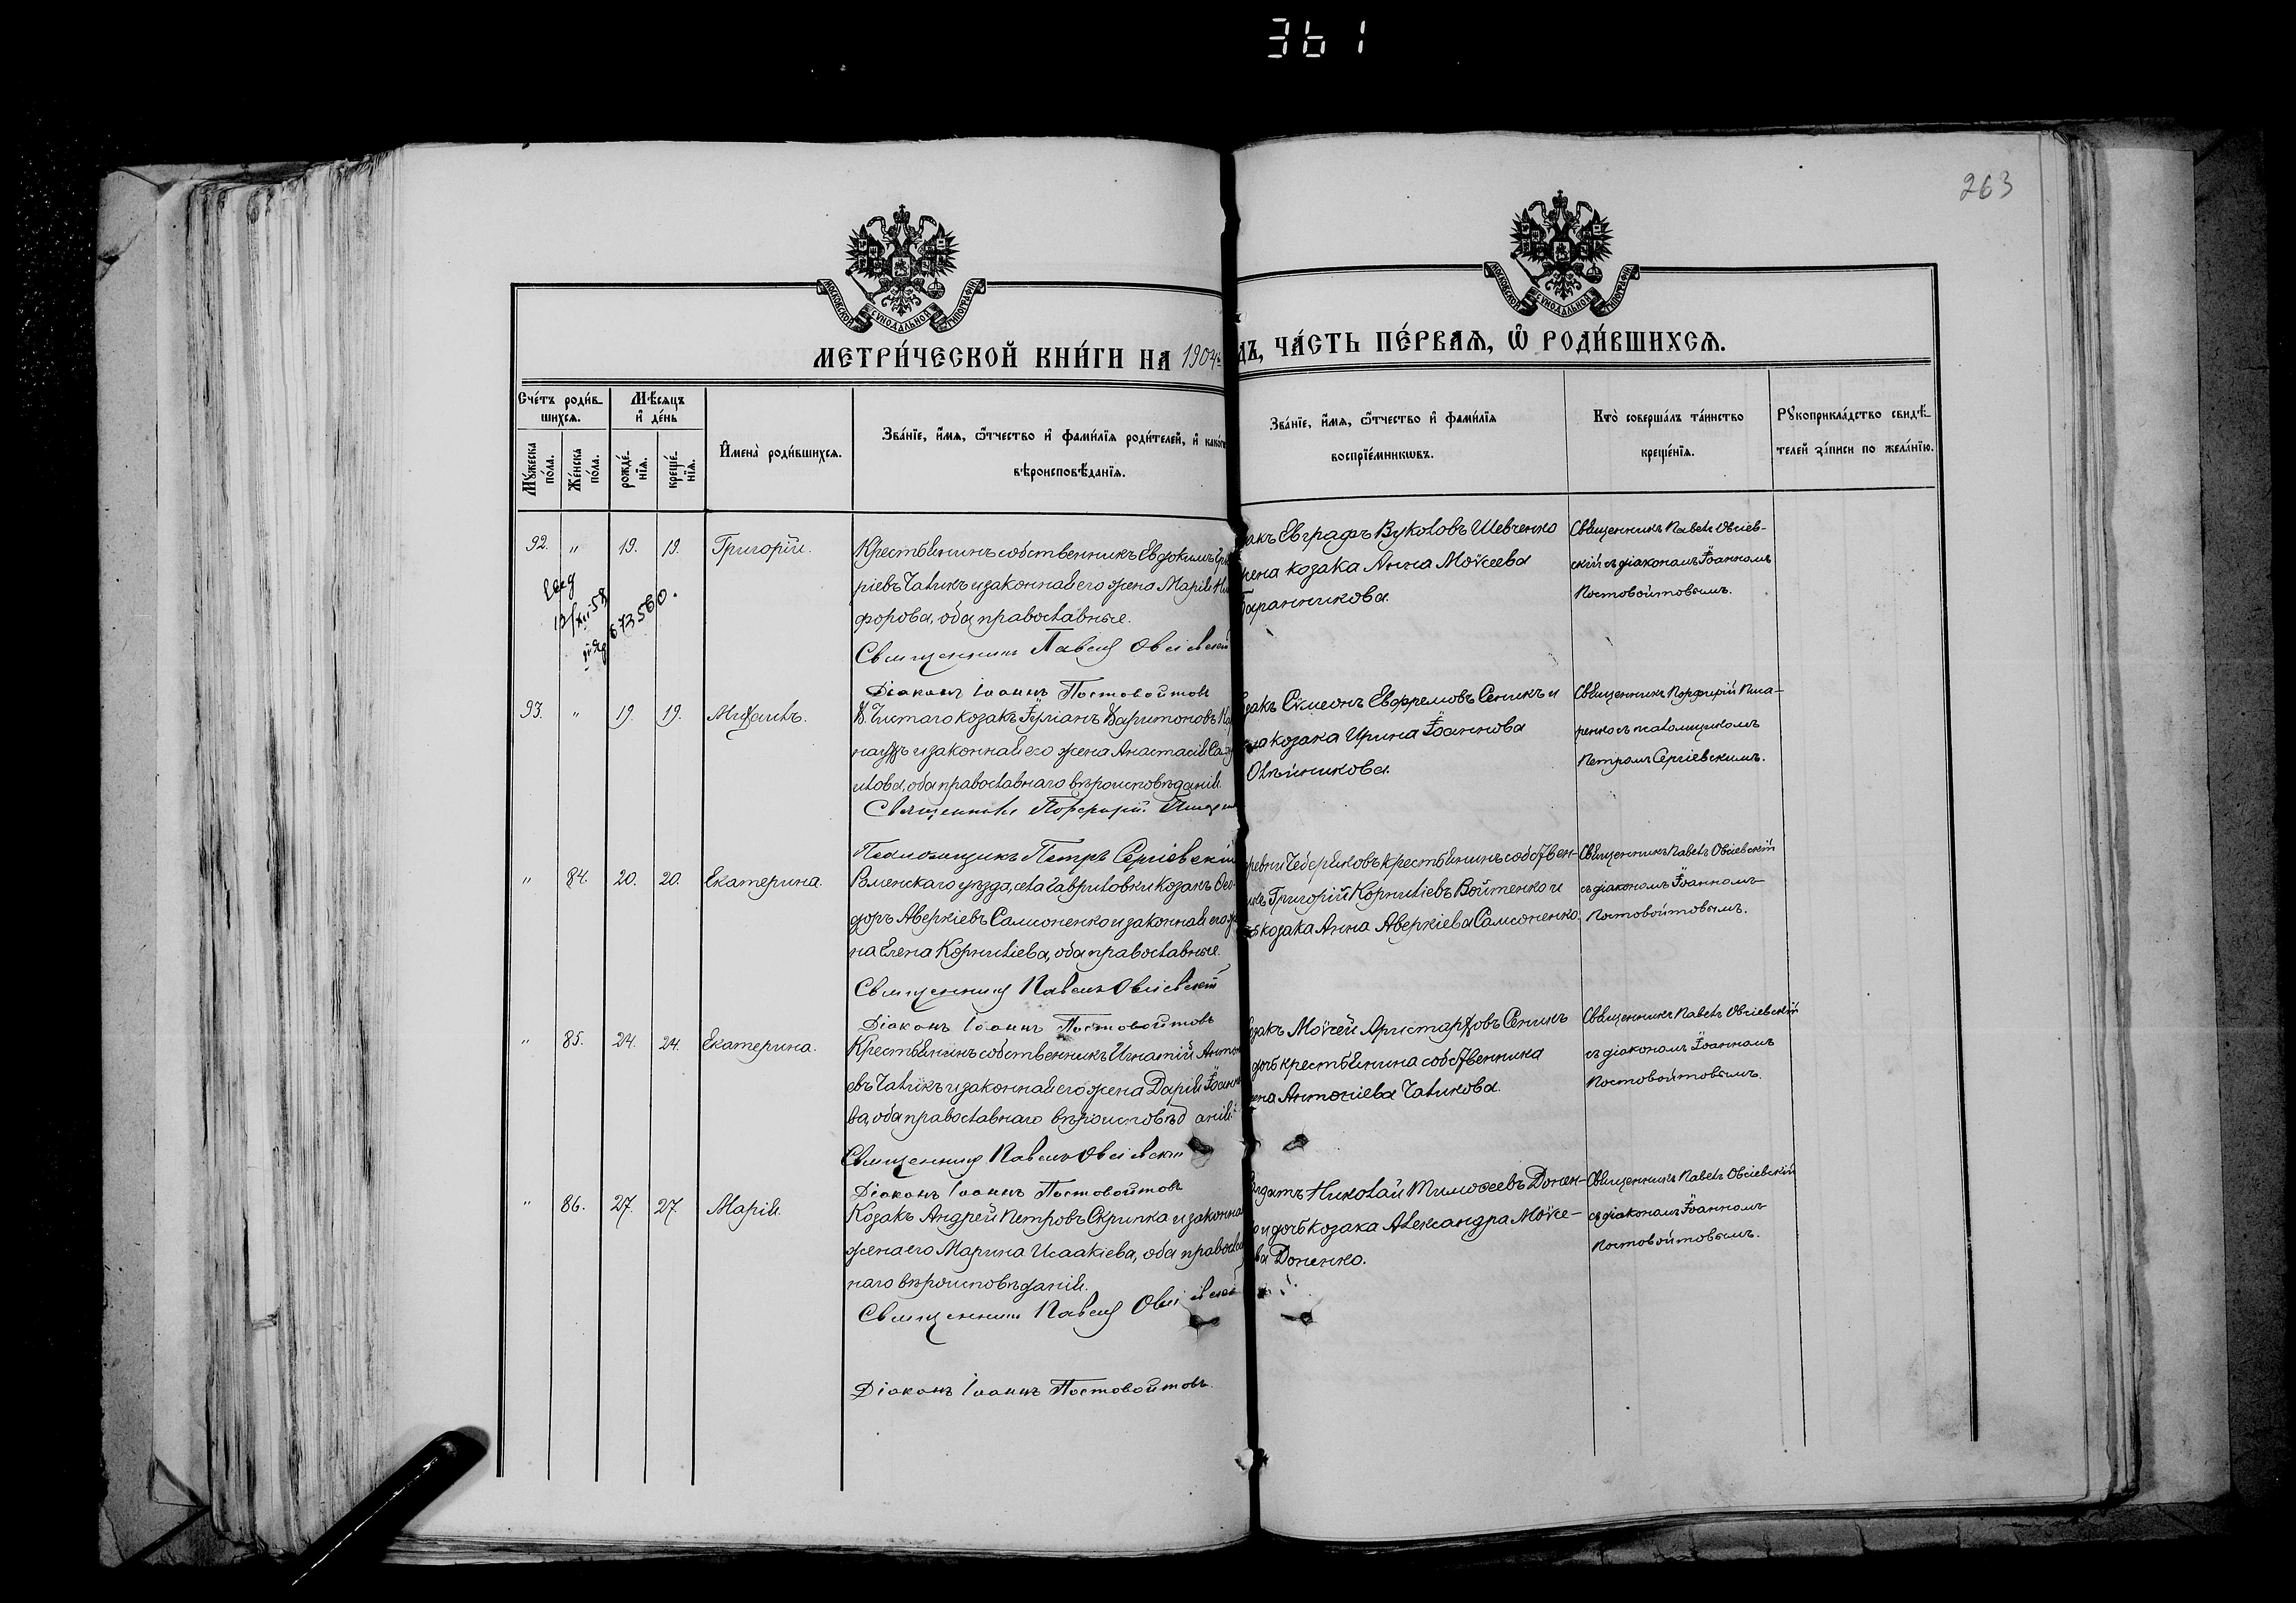 361
263
МОСКОВСКОЙ СУНОДАЛЬНОЙ ТИПОГРАФІИ
МОСКОВСКОЙ СУНОДАЛЬНОЙ ТИПОГРАФІИ
МЕТРИ́ЧЕСКОЙ КНИ́ГИ НА 1904 ДЪ, ЧА́СТЬ ПЕ́РВАѦ, Ѿ РОДИ́ВШИХСѦ.
Сче́тъ роди́в-
шихсѧ.
Мꙋжеска по́ла.
Же́нска по́ла.
Мѣ́сѧцъ
и҆ де́нь
рожде́-
нїѧ.
креще́-
нїѧ.
И҆мена̀ роди́вшихсѧ.
Зва́нїе, и҆́мѧ, ѻ҆́тчество и҆ фами́лїѧ роди́телей, и҆ како́г
вѣроисповѣ́данїѧ.
Зва́нїе, и҆́мѧ, ѻ҆́тчество и҆ фами́лїѧ
воспрїе́мникѡвъ.
Кто̀ соверша́лъ та́инство
креще́нїѧ.
Рꙋкоприкла́дство свидѣ́-
телей за́писи по жела́нїю.
92. " 19. 19. Григорій.
Крестьянинъ собственникъ Евдокимъ Гри
ріевъ Чаликъ и законная его жена Марія Ни
форова, оба православные.
Священникъ Павелъ Овсіевскій
Діаконъ Іоаннъ Постовойтовъ
акъ Евграфъ Вуколовъ Шевченко
жена козака Анна Моѵсеева
Таранникова.
Священникъ Павелъ Овсіев-
скій съ діакономъ Іоанномъ
Постовойтовымъ.
673580.
93. " 19. 19. Михаилъ.
Х. Чистаго козакъ Іуліанъ Харитоновъ
и законная его жена Анастасія
илова, оба православнаго вѣроисповѣданія.
Священникъ Порфирій
Псаломщикъ Петръ Сергіевскій
закъ Сѵмеонъ Евфремовъ Сеникъ и
на козака Ирина Іоаннова
Олѣйникова.
Священникъ Порфирій Писа-
ренко съ псаломщикомъ
Петромъ Сергіевскимъ.
" 84. 20. 20. Екатерина.
Роменскаго уѣзда, села Гавриловки козакъ Ѳео-
доръ Аверкіевъ Самсоненко и законная его же
на Елена Корниліева, оба православные.
Священникъ Павелъ Овсіевскій
Діаконъ Іоаннъ Постовойтовъ
ревни Чеберяковъ крестьянинъ собствен-
икъ Григорій Корниліевъ Войтенко и
козака Анна Аверкіева Самсоненко.
Священникъ Павелъ Овсіевскій
съ діакономъ Іоанномъ
Постовойтовымъ.
" 85. 24. 24. Екатерина.
Крестьянинъ собственникъ Игнатій Антон
евъ Чаликъ и законная его жена Дарія Іоанно
ва, оба православнаго вѣроисповѣданія.
Священникъ Павелъ Овсіевскій
Діаконъ Іоаннъ Постовойтовъ
закъ Моѵсей Аристарховъ Сеникъ
дочь крестьянина собственника
ена Антоніева Чаликова.
Священникъ Павелъ Овсіевскій
съ діакономъ Іоанномъ
Постовойтовымъ.
" 86. 27. 27. Марія.
Козакъ Андрей Петровъ Скрипка и законна
жена его Марина Исаакіева, оба правосла
наго вѣроисповѣданія.
Священникъ Павелъ Овсіевскій
Діаконъ Іоаннъ Постовойтовъ.
лдатъ Николай Тимоѳеевъ Донен-
о и дочь козака Александра Моѵсе-
ва Доненко.
Священникъ Павелъ Овсіевскій
съ діакономъ Іоанномъ
Постовойтовымъ.